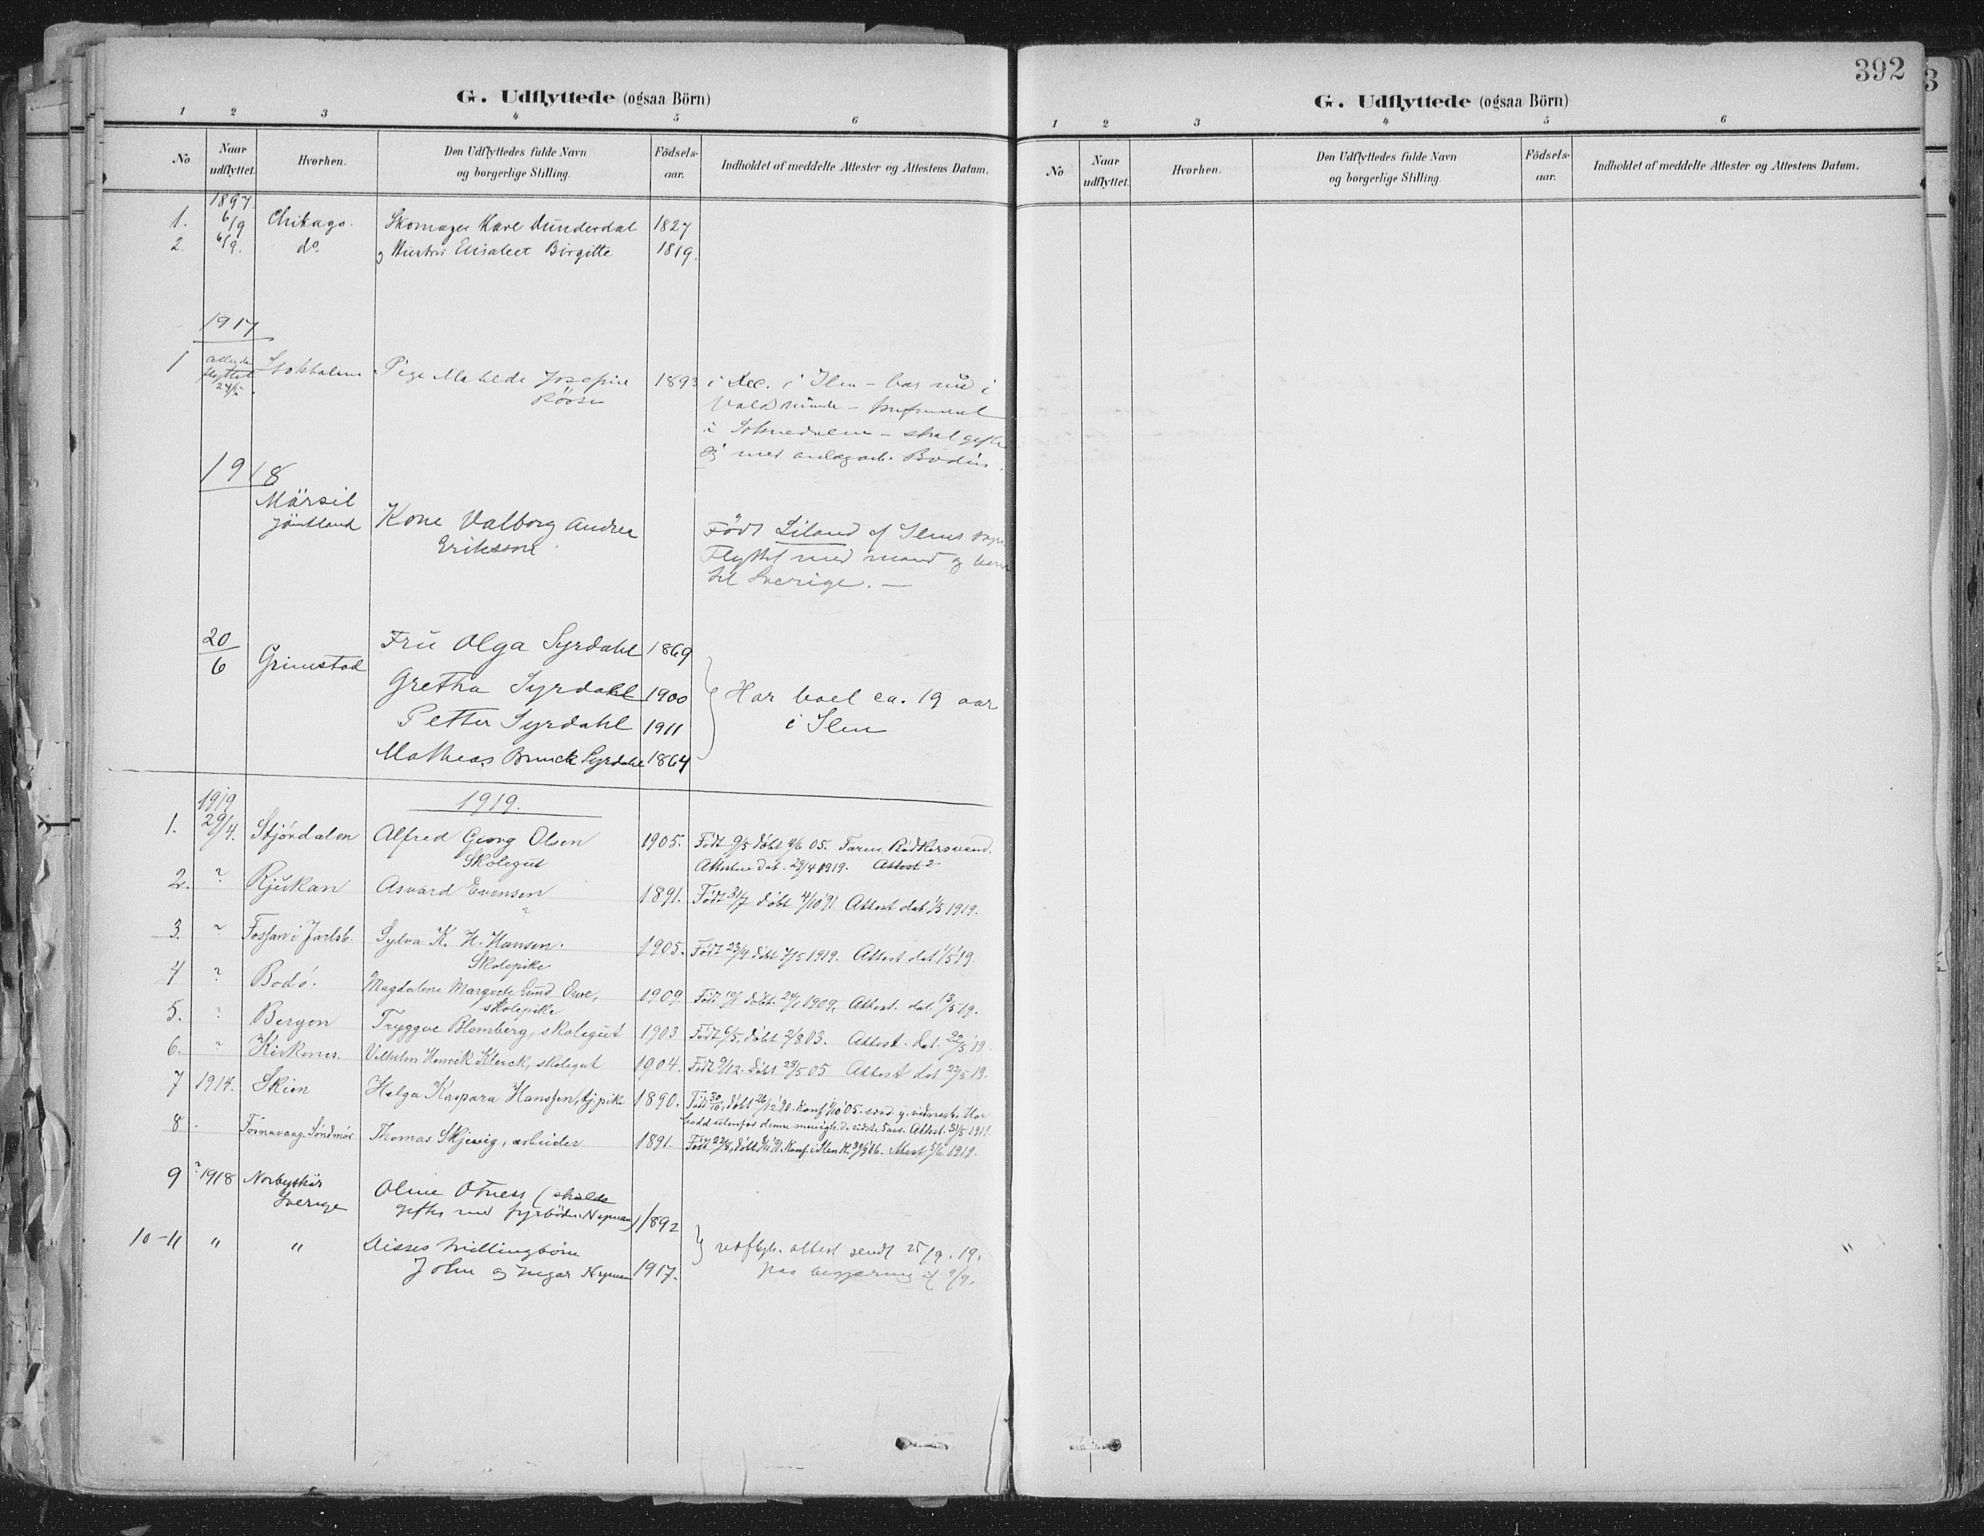 G. Udflyttede (ogsaa Börn)
1 2 3 4 5 6
No Naar udflyttet. Hvorhen. Den Udflyttedes fulde Navn og borgerlige Stilling. Födsels-aar. Indholdet af meddelte Attester og Attestens Datum.
1897.
1. 6/9 Chikago. Skomager Karl Sunderdal 1827
2 6/9. do og Hustru Elisabet Birgitte 1819.
1917
1 allerede flyttet 24/5. Stokholm Pige Matilde Josefine 1893 i Dec. i Ilen – bor nu i
i Soknedalen – skal gifte
sig med anlægsarb. Bodin.
1918
Märsil
Jämtland Kone Valborg Andrea
Eriksson.
Født Liland af Ilens sogn
Flyttet med mand og barn
til Sverige. –
20/6 Grimstad Fru Olga Syrdahl 1869
Gretha Syrdahl 1900
Petter Syrdahl 1911
Mathias Brinck Syrdahl 1864
Har boet ca. 19 aar
i Ilen
1919 1919.
1. 29/4. Stjørdalen Alfred Georg Olsen 1905. Født 9/5 døbt 4/6 05. Faren Rødkorsmand.
Skolegut Attesten dat. 29/4 1919. Attest 2
2. ? Rjukan Asvard Evensen 1891. Født 31/7 døbt 4/10 91. Attest dat. 1/5 1919.
?
3. ? Fossan i Jarlsb. Sylva K. H. Hansen. 1905. Født 23/4 døbt 7/5 1919. Attest dat. 1/5 19.
Skolepike
4 ? Bodø. Magdalene Margrete Lund 1909. Født 10/1 døbt 24/1 1909, Attest. dat. 13/5 19.
skolepike
5. ? Bergen Tryggve Blomberg, skolegut 1903 Født 6/5. døbt 2/8 03. Attest. dat. 22/5 19.
6. ? Kirkenes. Vilhelm Henrik Klerck, skolegut 1904. Født 9/12. døbt 28/5 05 Attest dat 22/5 19.
7 1914. Skien Helga Kaspara Hanssen, tj.pike 1890. Født 30/10, døbt 26/12 90. Konf. 1/10 05.
bodd utenfor denne menighed de sidste 5 aar. Attest. 31/5 1919.
8. Fosnavaag. Søndmør Thomas Skjevig, arbeider 1891. Født 22/8, Konf. i Ilen K. Attest 5/6 1919.
9 ? 1918 Norbyskär
Sverige Oline Otness (skulde
giftes med fyrbøder Nyman) 1892
10-11 " " Disses tvillingbørn
John og Ingar Nyman 1917.
utflytn. attest sendt 25/9. 19.
paa begjæring af 9/9.
392
G. Udflyttede (ogsaa Börn)
1 2 3 4 5 6
No Naar udflyttet. Hvorhen. Den Udflyttedes fulde Navn og borgerlige Stilling. Födsels-aar. Indholdet af meddelte Attester og Attestens Datum.
3